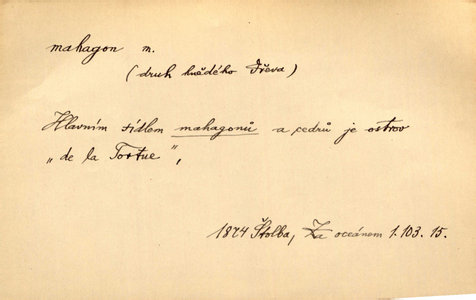 mahagon m.
(druh hnědého dřeva)
Hlavním sídlem mahagonů a cedrů je ostrov
„de la Tortue",
1874 Štolba, Za oceánem 1.103.15.